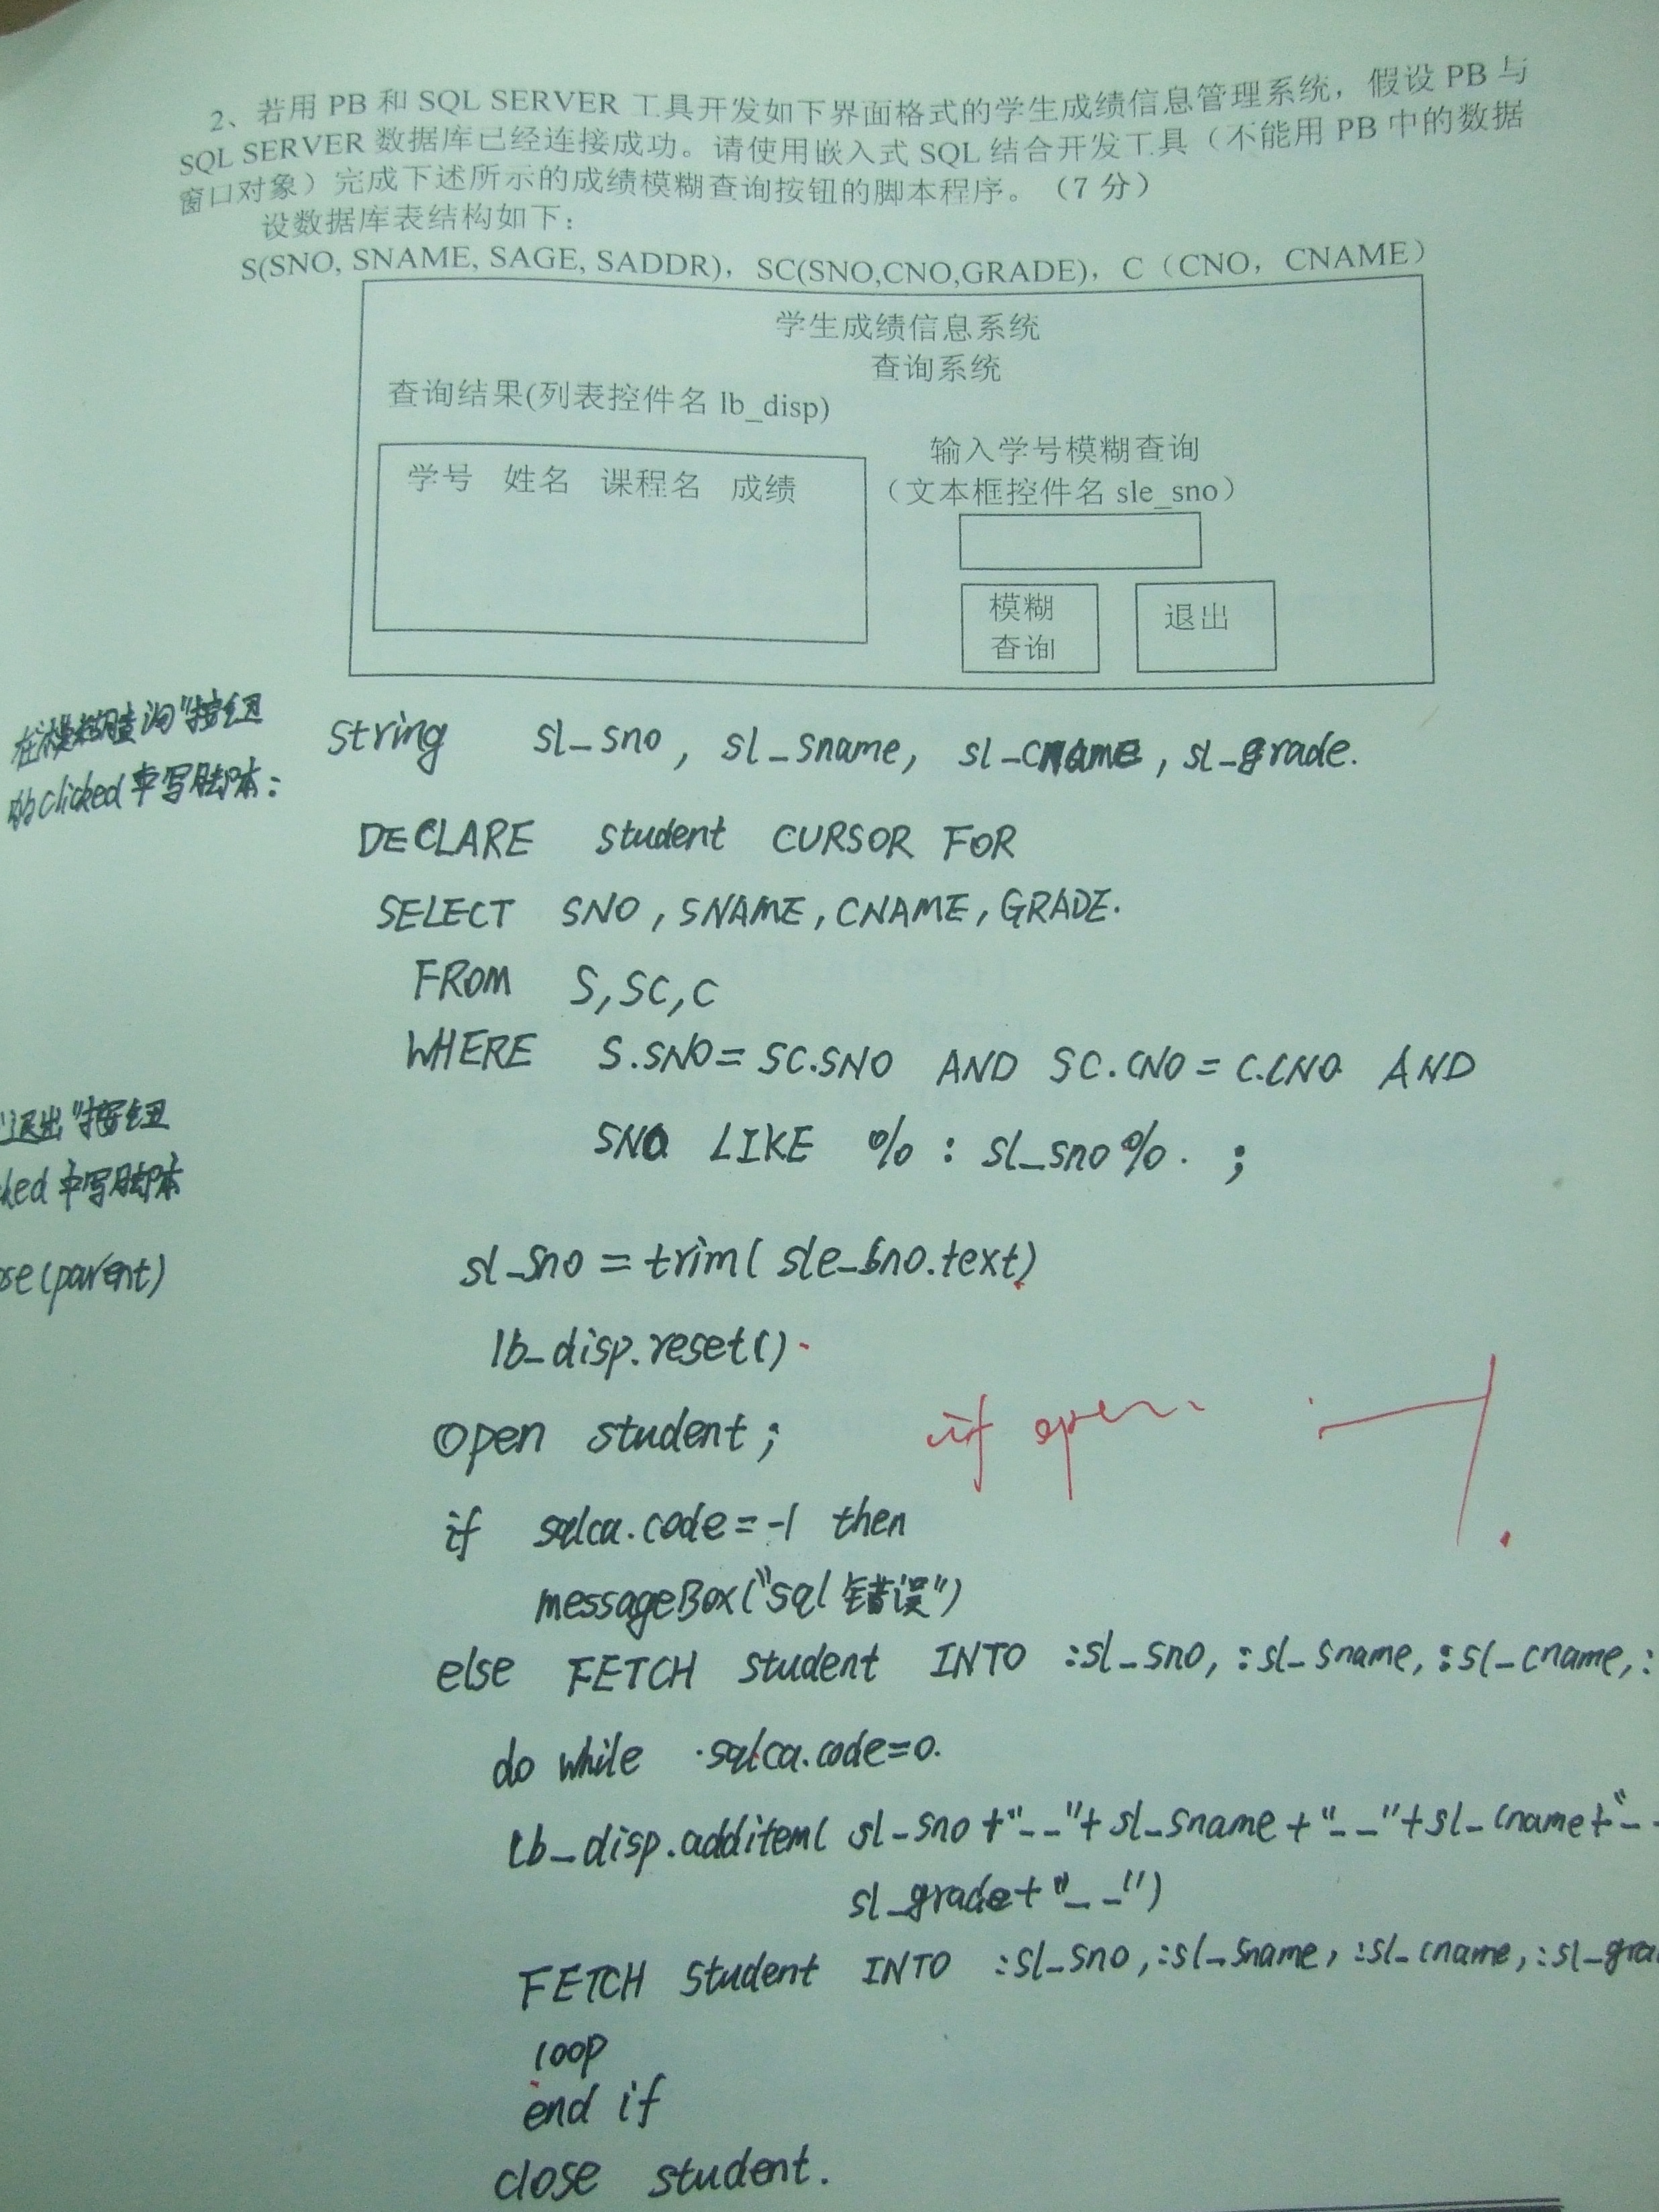 2、若用 PB 和 SQL SERVER 工具开发如下界面格式的学生成绩信息管理系统，假设 PB 与
SQL SERVER 数据库已经连接成功。请使用嵌入式 SQL 结合开发工具（不能用 PB 中的数据
窗口对象）完成下述所示的成绩模糊查询按钮的脚本程序。（7 分）
设数据库表结构如下：
S(SNO, SNAME, SAGE, SADDR)，SC(SNO,CNO,GRADE)，C（CNO，CNAME）
学生成绩信息系统
查询系统
查询结果(列表控件名 lb_disp)
输入学号模糊查询
（文本框控件名 sle_sno）
学号 姓名 课程名 成绩
模糊
查询
退出
在"模糊查询"按钮
的clicked中写脚本：
string sl_sno, sl_sname, sl_cname, sl_grade.
DECLARE student CURSOR FOR
SELECT SNO, SNAME, CNAME, GRADE.
FROM S, SC, C
WHERE S.SNO = SC.SNO AND SC.CNO = C.CNO AND
SNO LIKE % : sl_sno %. ;
"退出"按钮
ked 中写脚本
ose(parent)
sl_sno = trim( sle_sno.text)
lb_disp.reset()
open student;
if open
if sqlca.code=-1 then
messageBox("sql 错误")
else FETCH student INTO :sl_sno, :sl_sname, :sl_cname, :
do while sqlca.code=0.
lb_disp.additem( sl_sno+"_ _"+ sl_sname + "_ _"+sl_cname+"_ _
sl_grade+ "_ _")
FETCH student INTO :sl_sno, :sl_sname, :sl_cname, :sl_gra
loop
end if
close student.